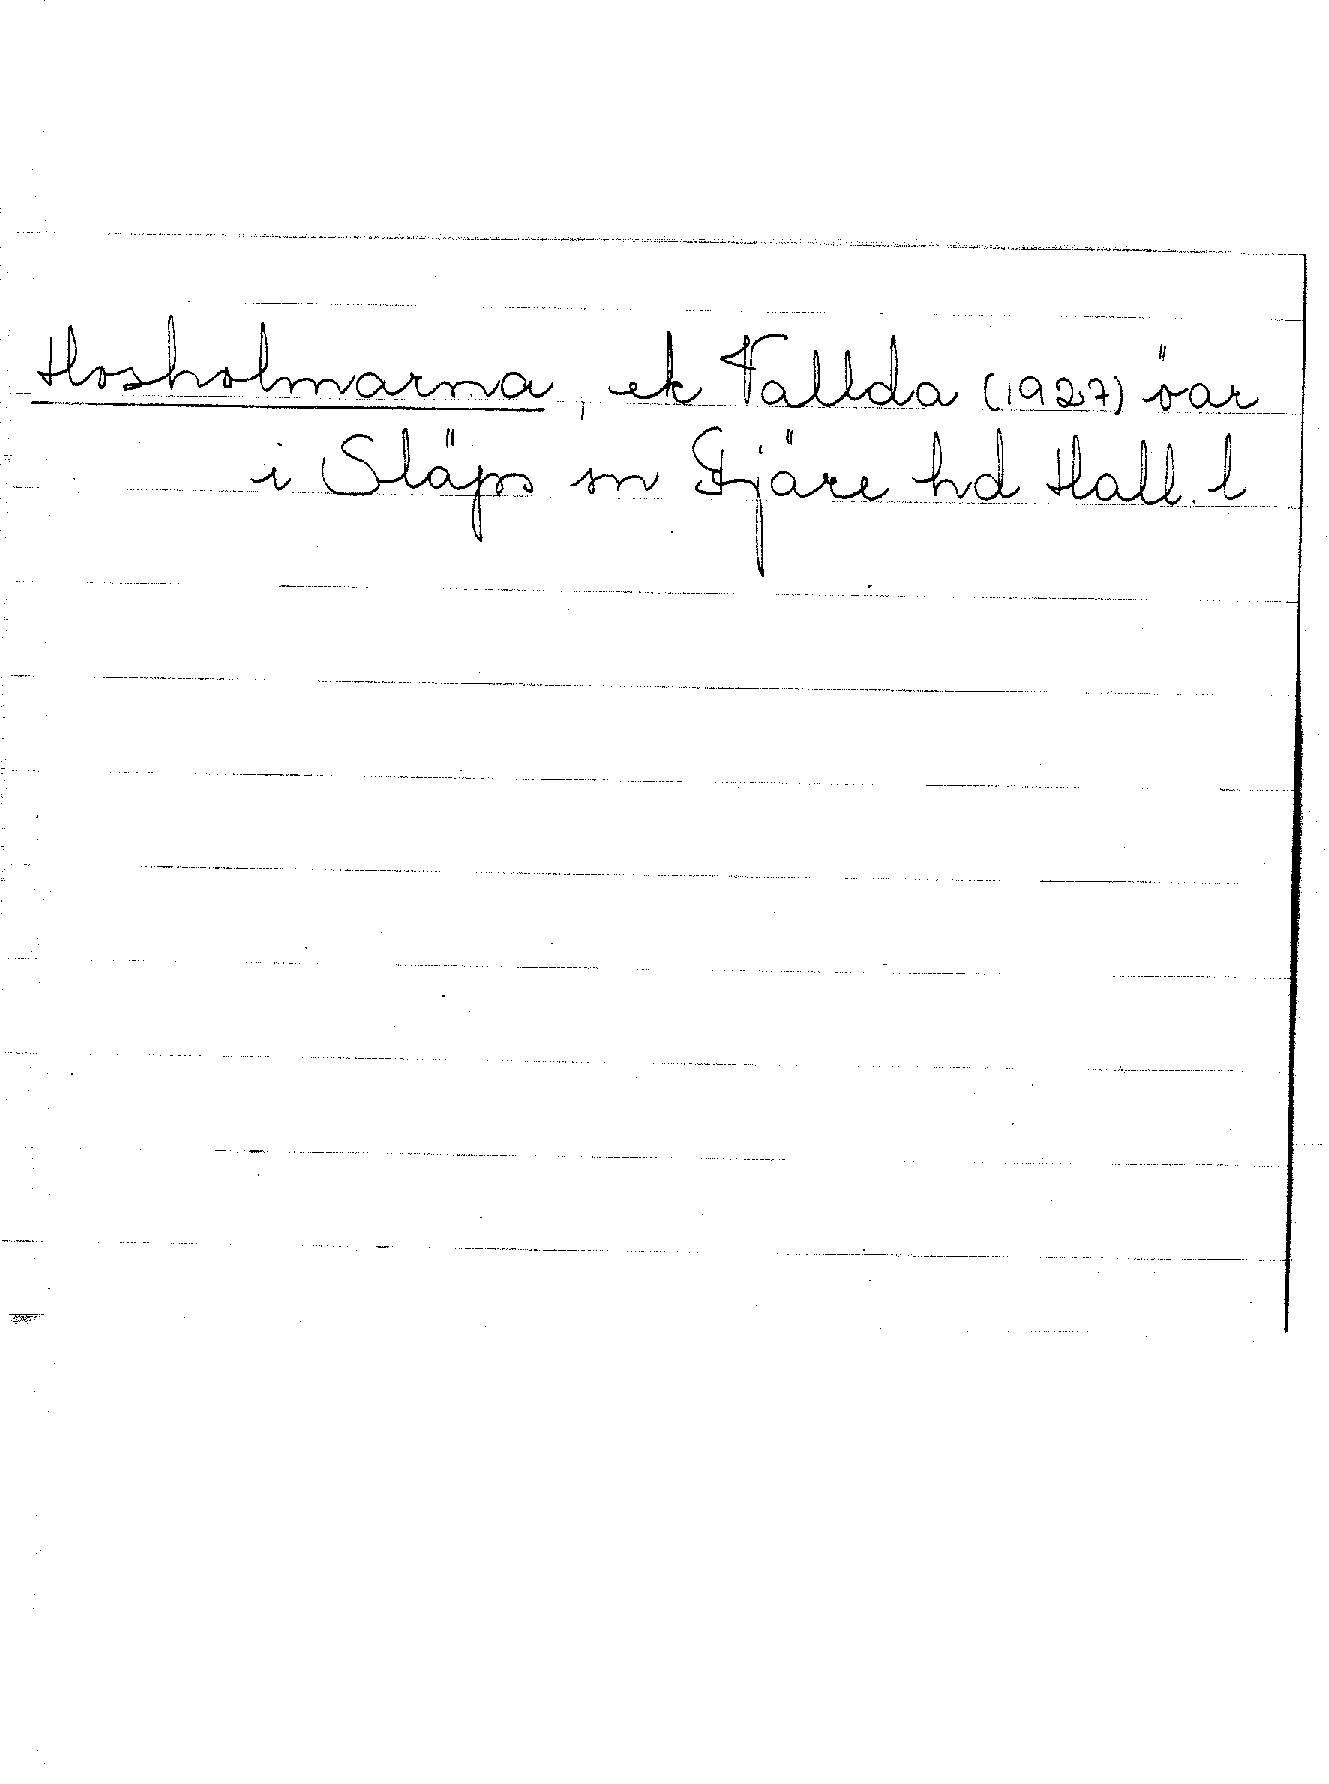 Hosholmarna, ek Vallda (1927) öar
i Släps sn Fjäre hd Hall. l